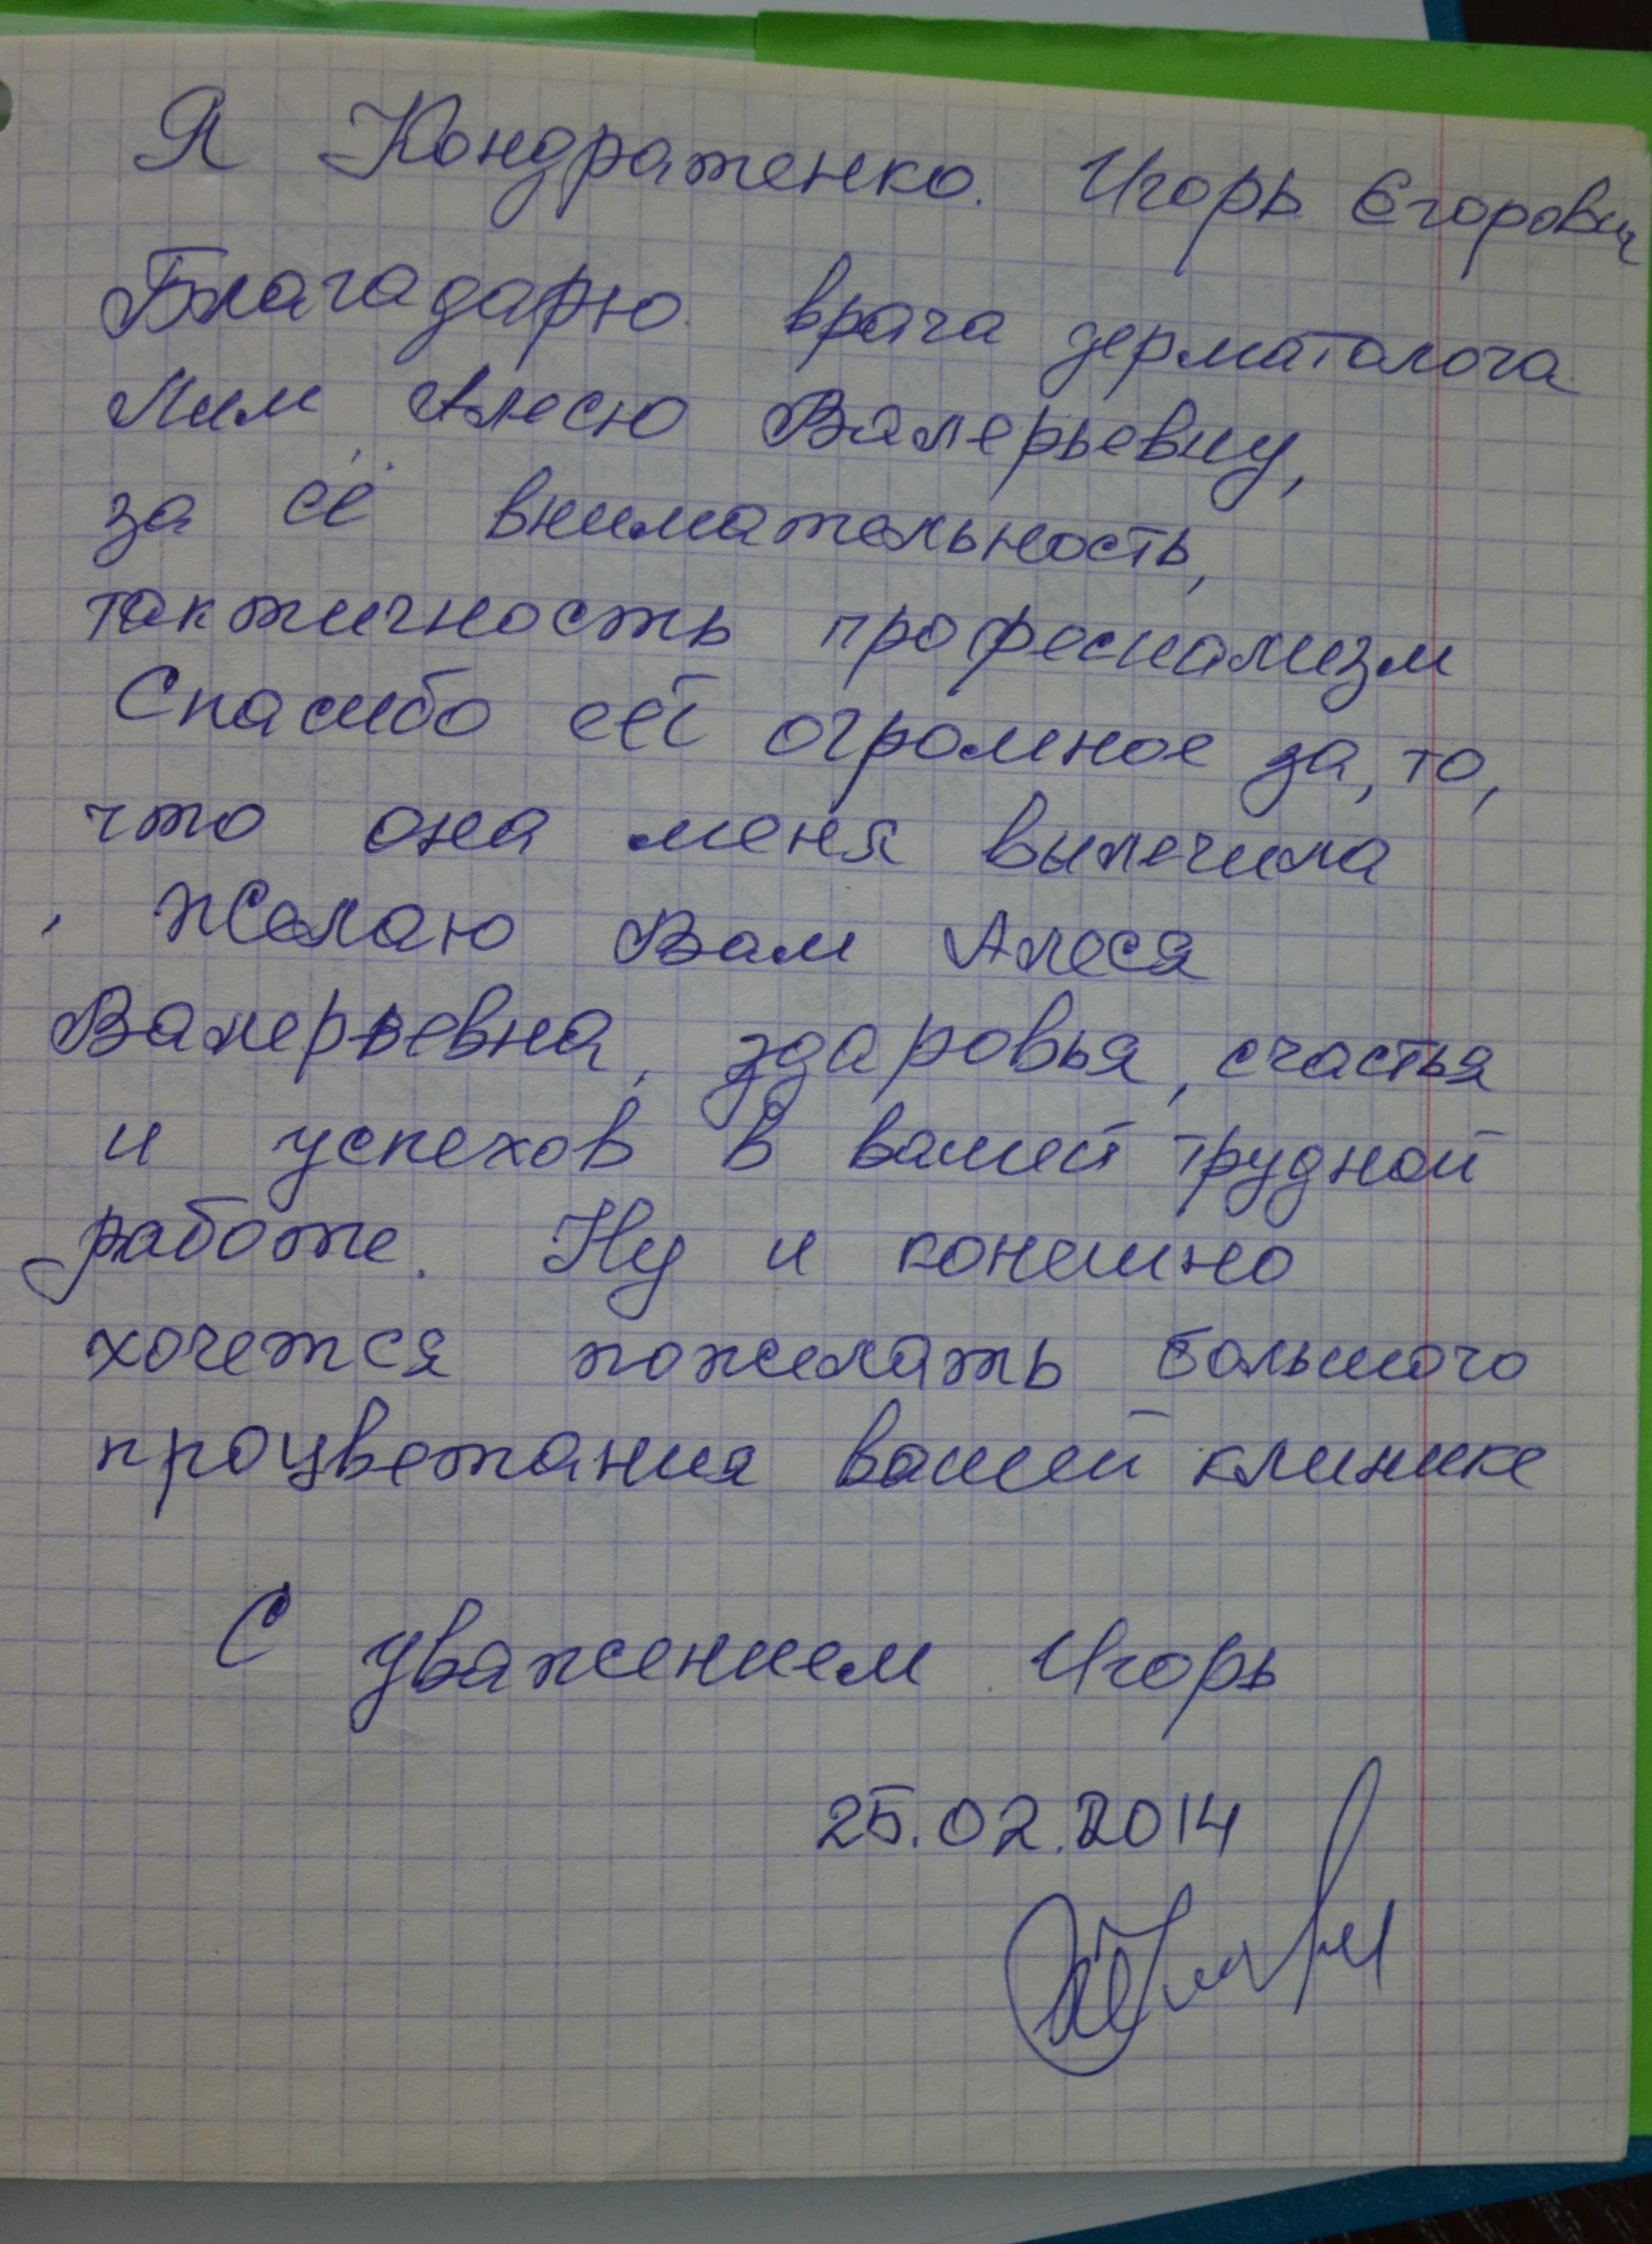 Я Кондратенко. Игорь Егорович
Благадарю врача дерматолога
Лим Алесю Валерьевну,
за её внимательность,
тактичность професиализм
Спасибо ей огромное за, то,
что она меня вылечила
, Желаю Вам Алеся
Валерьевна, здаровья, счастья
и успехов в вашей трудной
работе. Ну и конешно
хочется пожелать большого
процветания вашей клинике
С уважением Игорь
25.02.2014